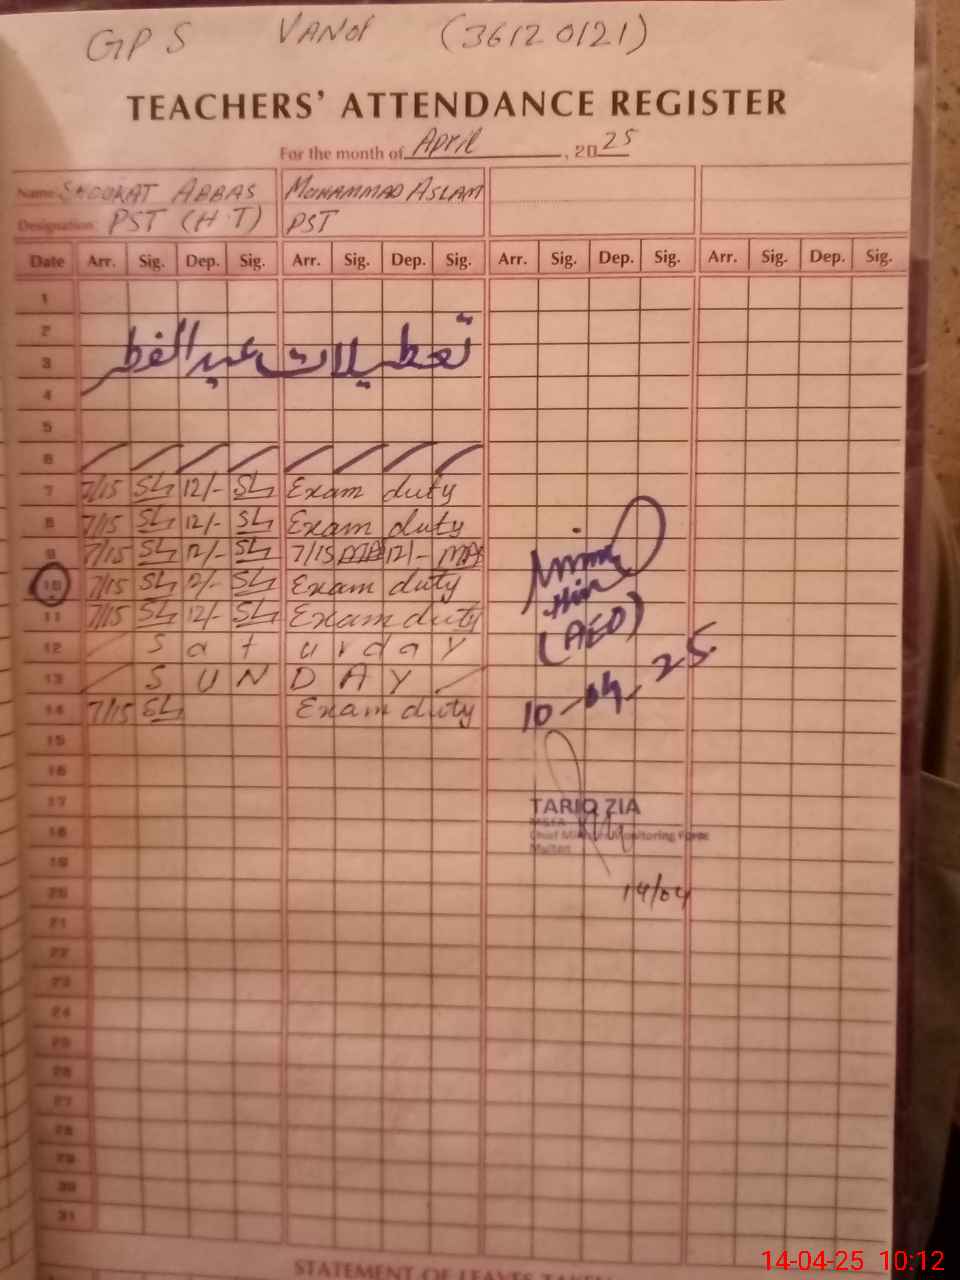 GPS VANOI (36120121)
TEACHERS' ATTENDANCE REGISTER
For the month of April, 2025
Name SHOUKAT ABBAS MUHAMMAD ASLAM
Designation PST (H.T) PST
Date Arr. Sig. Dep. Sig. Arr. Sig. Dep. Sig. Arr. Sig. Dep. Sig. Arr. Sig. Dep. Sig.
1
2
3 تعطیلات عید الفطر
4
5
6
7 7/15 12/- Exam duty
8 7/15 12/- Exam duty
9 7/15 12/- 7/15 MA 12/- MA
10 7/15 12/- Exam duty
11 7/15 12/- Exam duty
12 Saturday
13 SUNDAY
14 7/15 Exam duty
(AEO)
10-04-25.
15
16
17
18
19
20
21
22
23
24
25
26
27
28
29
30
31
TARIQ ZIA
MEA
Chief Minister Monitoring Force
Multan
14/04
STATEMENT OF LEAVES TAKEN
14-04-25 10:12